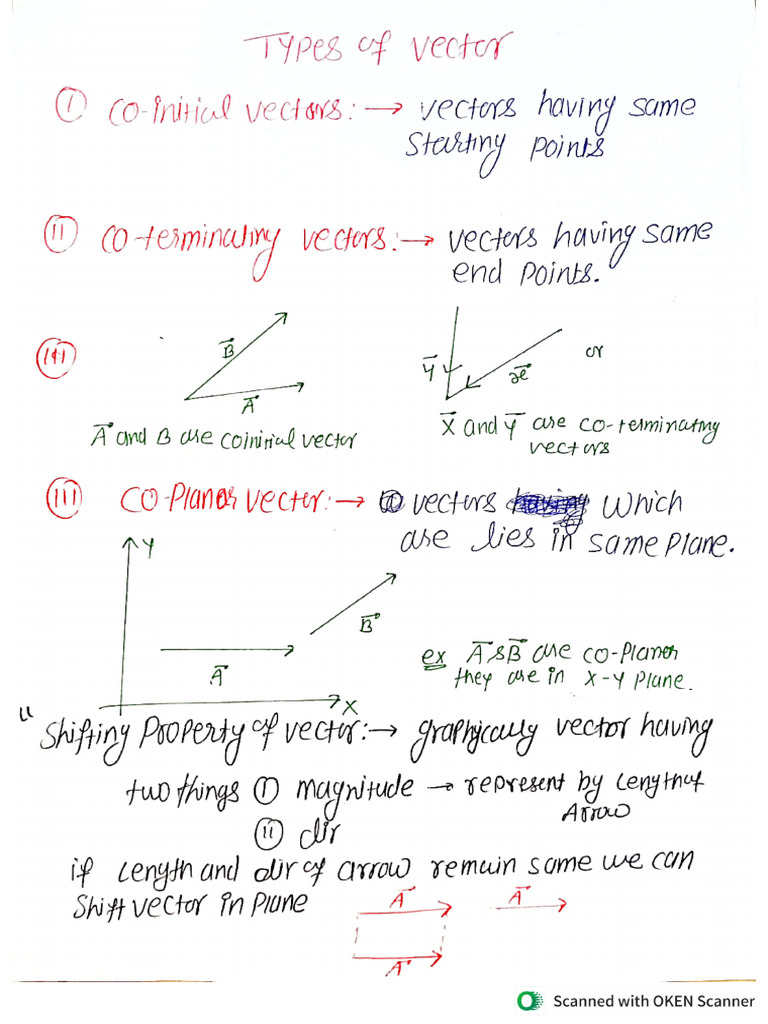 Types of vector
(I) co-initial vectors: → vectors having same
starting points
(II) co-terminating vectors: → vectors having same
end points.
(III)
B⃗
A⃗
A⃗ and B are coinitial vector
Y⃗
x⃗
or
X⃗ and Y⃗ are co-terminating
vectors
(III) co-Planar vector: → vectors which
are lies in same plane.
Y
B⃗
A⃗
X
ex A⃗ & B⃗ are co-Planar
they are in X-Y Plane.
"Shifting Property of vector: → graphically vector having
two things (I) magnitude → represent by length of
Arrow
(II) dir
if length and dir of arrow remain same we can
shift vector in Plane
A⃗
A⃗
A⃗
Scanned with OKEN Scanner